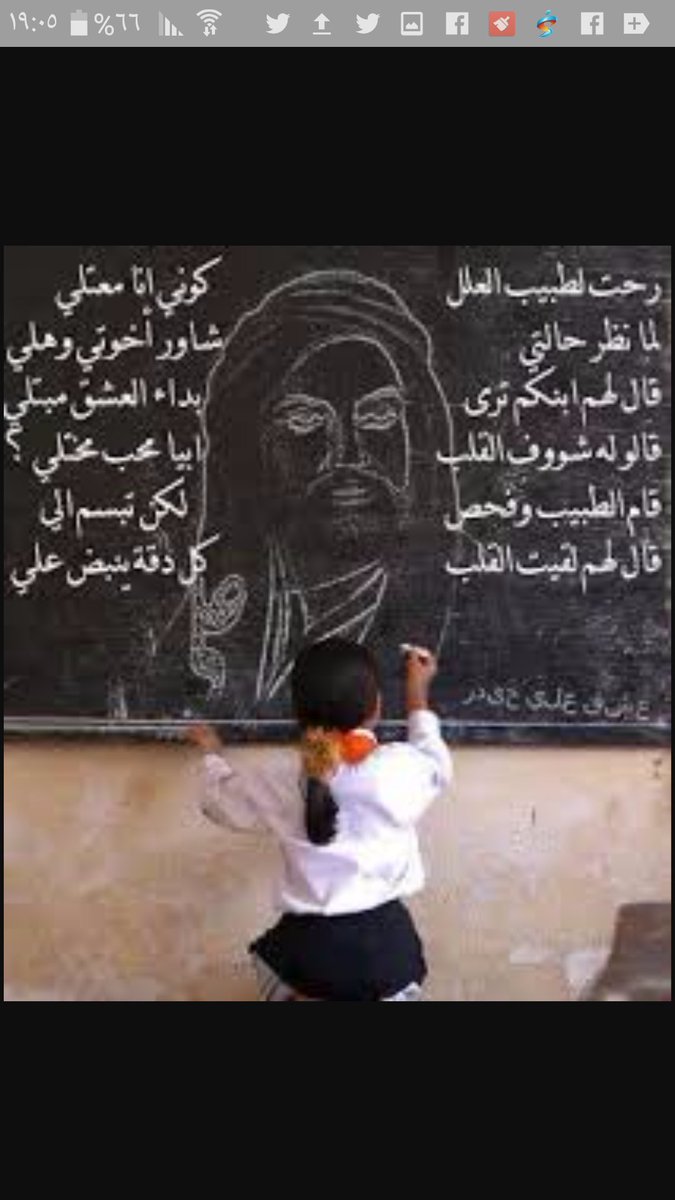 ١٩:٠٥ %٦٦
رحت لطبيب العلل كوني انا معتلي
لما نظر حالتي شاور أخوتي وهلي
قال لهم ابنكم ترى بداء العشق مبتلي
قالوله شووف القلب ابيا محب مختلي ؟
قام الطبيب وفحص لكن تبسم الي
قال لهم لقيت القلب كل دقة ينبض علي